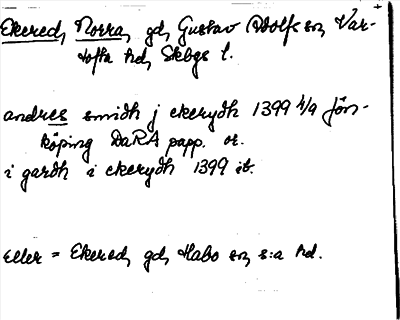 Ekered, Norra, gd, Gustav Adolfs sn, Var-
tofta hd, Skbgs l.
andres smidh j ekerydh 1399 4/9 Jön-
köping DaRA papp. or.
i gardh i ekerydh 1399 ib.
Eller = Ekered, gd, Habo sn, s:a hd.